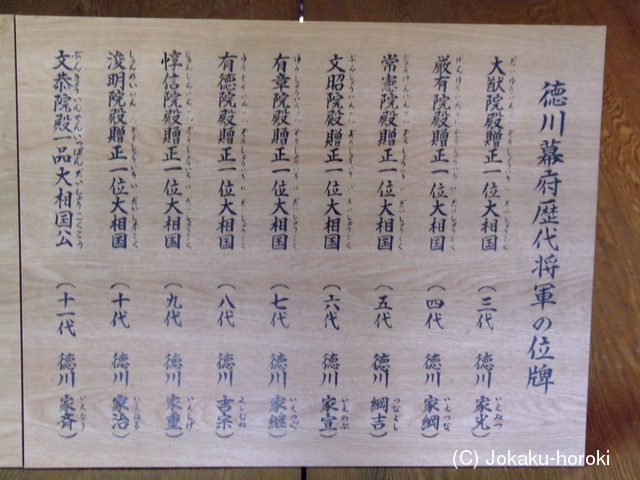 徳川幕府歴代将軍の位牌
大猷院殿贈正一位大相国 (三代 徳川 家光)
厳有院殿贈正一位大相国 (四代 徳川 家綱)
常憲院殿贈正一位大相国 (五代 徳川 綱吉)
文昭院殿贈正一位大相国 (六代 徳川 家宣)
有章院殿贈正一位大相国 (七代 徳川 家継)
有徳院殿贈正一位大相国 (八代 徳川 吉宗)
惇信院殿贈正一位大相国 (九代 徳川 家重)
浚明院殿贈正一位大相国 (十代 徳川 家治)
文恭院殿一品大相国公 (十一代 徳川 家斉)
(C) Jokaku-horoki